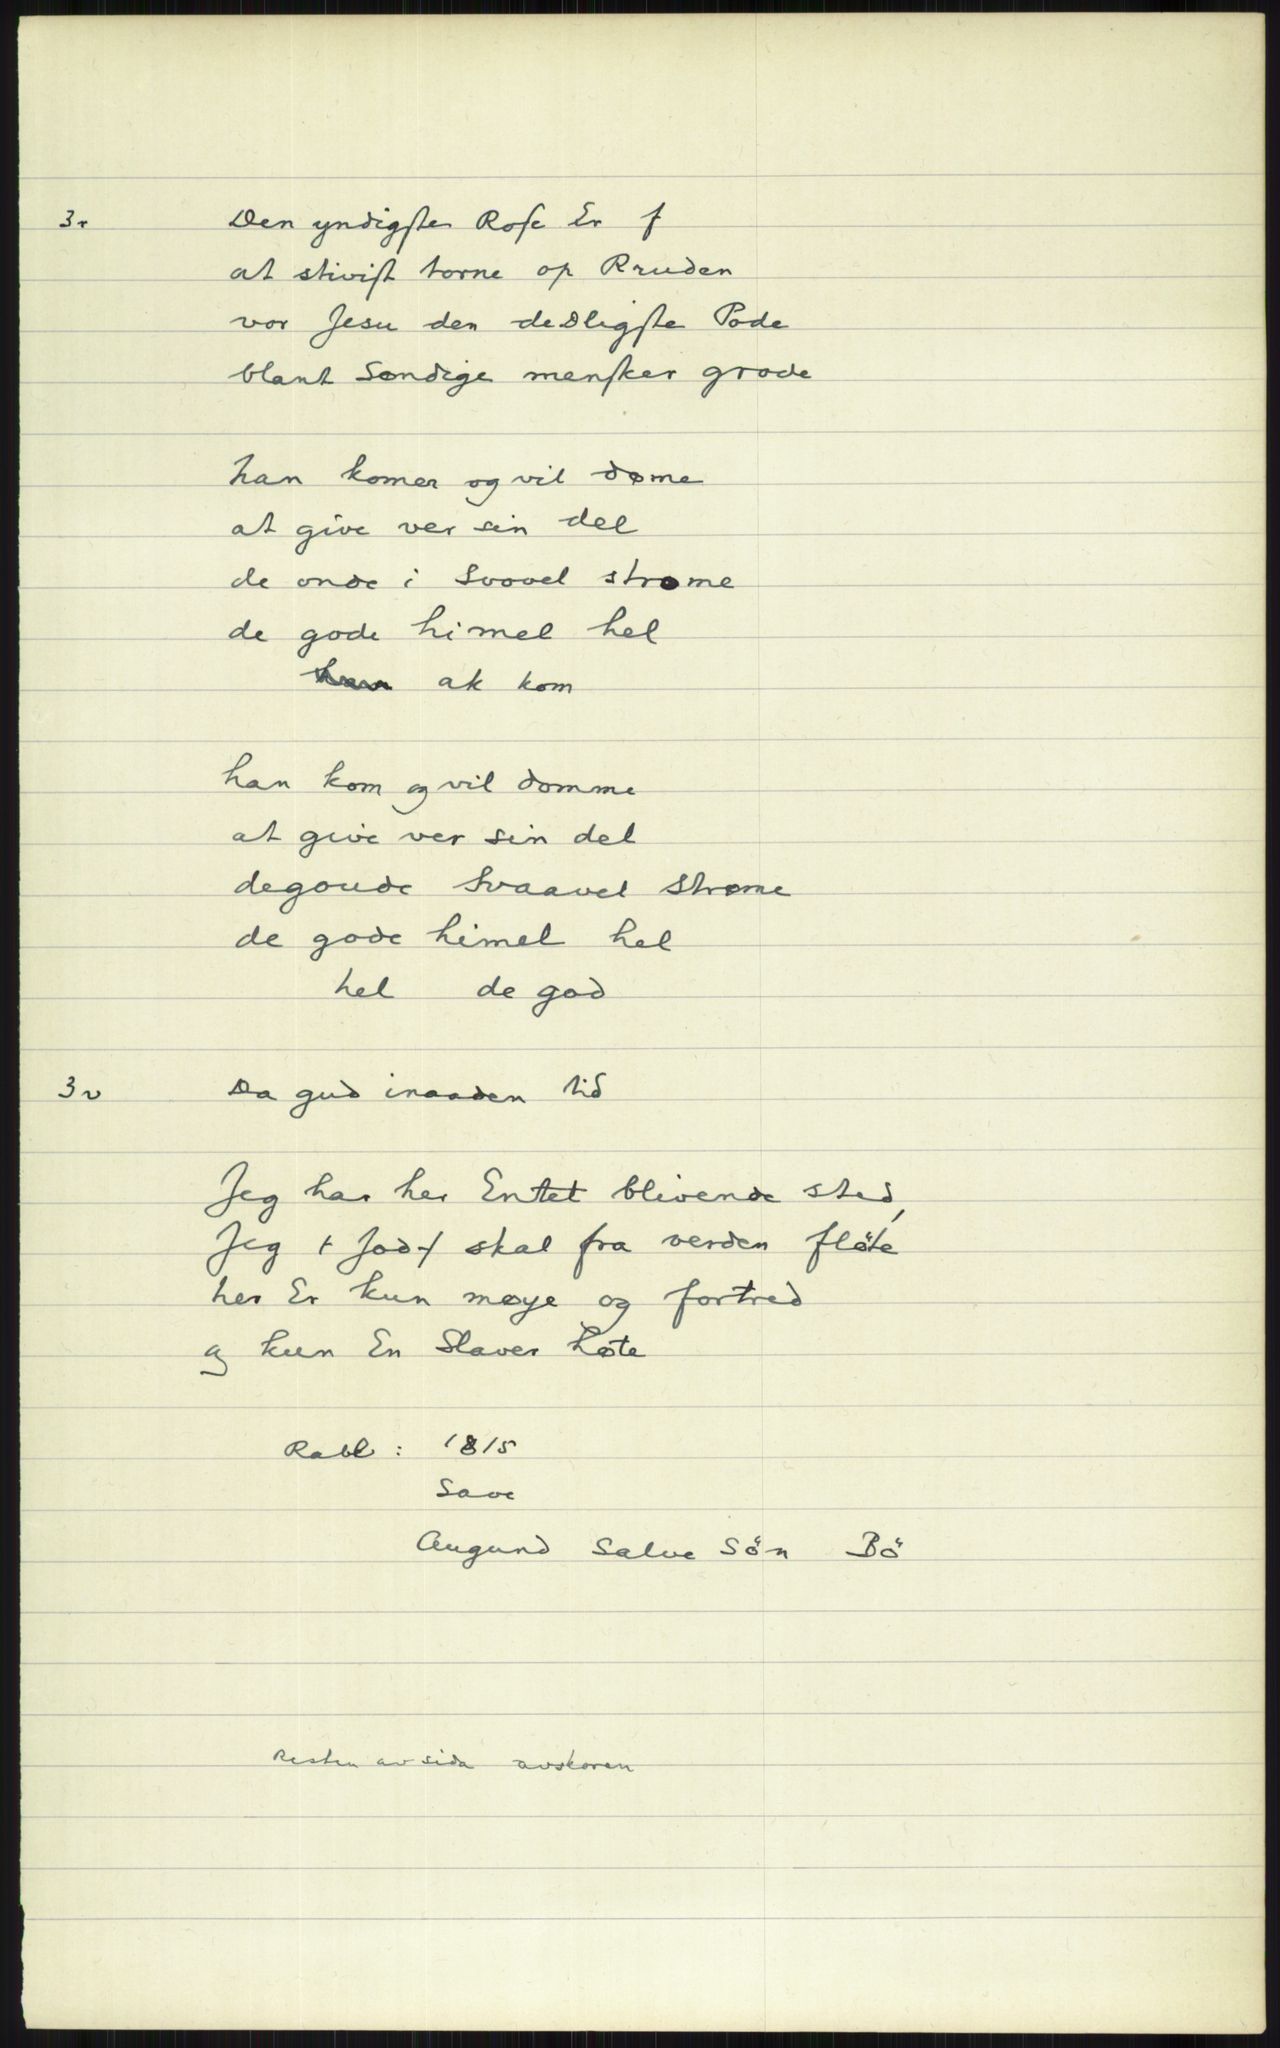 3r Den yndigste Rose Er f
at stivist torne op Rruden
vor Jesu den dedligste Pode
blant Søndige mensker grode
han komer og vil døme
at give ver sin del
de onde i Svovel strøme
de gode himel hel
ak kom
han kom og vil domme
at give ver sin del
degoude Svaavel Strøme
de gode himel hel
hel de god
3v Da gud inaaden tid
Jeg har her Entet blivende sted,
Jeg + Jod+ skal fra verden fløte
her Er kun møye og fortred
og kun En Slaver høte
Rabl : 1815
Save
Augund Salve Sön Bö
Resten av sida avskoren